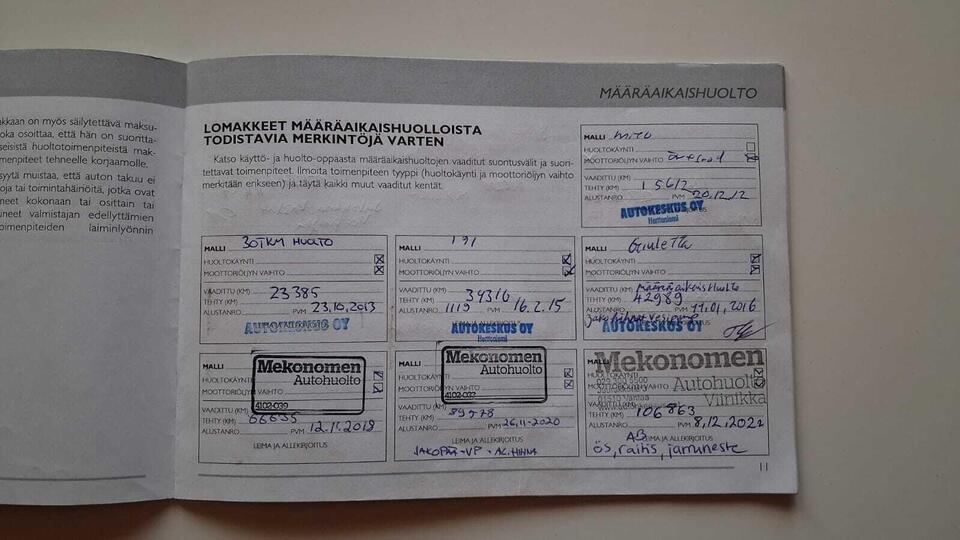 MÄÄRÄAIKAISHUOLTO
kkaan on myös säilytettävä maksu-
oka osoittaa, että hän on suoritta-
seisistä huoltotoimenpiteistä mak-
menpiteet tehneelle korjaamolle.
syytä muistaa, että auton takuu ei
oja tai toimintahäiriöitä, jotka ovat
neet kokonaan tai osittain tai
uneet valmistajan edellyttämien
oimenpiteiden laiminlyönnin
LOMAKKEET MÄÄRÄAIKAISHUOLLOISTA
TODISTAVIA MERKINTÖJÄ VARTEN
Katso käyttö- ja huolto-oppaasta määräaikaishuoltojen vaaditut suoritusvälit ja suori-
tettavat toimenpiteet. Ilmoita toimenpiteen tyyppi (huoltokäynti ja moottoriöljyn vaihto
merkitään erikseen) ja täytä kaikki muut vaaditut kentät.
MALLI MITO
HUOLTOKÄYNTI
MOOTTORIÖLJYN VAIHTO
VAADITTU (KM)
TEHTY (KM) 15612
ALUSTANRO PVM 20.12.12
AUTOKESKUS OY
Herttoniemi
MALLI 30TKM HUOLTO
HUOLTOKÄYNTI
MOOTTORIÖLJYN VAIHTO
VAADITTU (KM)
TEHTY (KM) 23385
ALUSTANRO PVM 23.10.2013
AUTOKESKUS OY
MALLI
HUOLTOKÄYNTI
MOOTTORIÖLJYN VAIHTO
VAADITTU (KM)
TEHTY (KM) 34316
ALUSTANRO 1119 PVM 16.2.15
AUTOKESKUS OY
Herttoniemi
MALLI Giulietta
HUOLTOKÄYNTI
MOOTTORIÖLJYN VAIHTO
VAADITTU (KM) Määräaikaishuolto
TEHTY (KM) 42989
ALUSTANRO PVM 11.01.2016
jakohihnat vesipump
AUTOKESKUS OY
MALLI
Mekonomen
Autohuolto
4102-039
HUOLTOKÄYNTI
MOOTTORIÖLJYN VAIHTO
VAADITTU (KM)
TEHTY (KM) 66635
ALUSTANRO PVM 12.11.2018
LEIMA JA ALLEKIRJOITUS
MALLI
Mekonomen
Autohuolto
4102-022
HUOLTOKÄYNTI
MOOTTORIÖLJYN VAIHTO
VAADITTU (KM)
TEHTY (KM) 89578
ALUSTANRO PVM 26.11-2020
LEIMA JA ALLEKIRJOITUS
JAKOPÄÄ+VP+AC.HIHNA
MALLI
Mekonomen
Autohuolto
Viinikka
HUOLTOKÄYNTI
MOOTTORIÖLJYN VAIHTO
01510 Vantaa
VAADITTU (KM)
TEHTY (KM) 106863
ALUSTANRO PVM 8.12.2022
AB LEIMA JA ALLEKIRJOITUS
ös, raitis, jarruneste
11